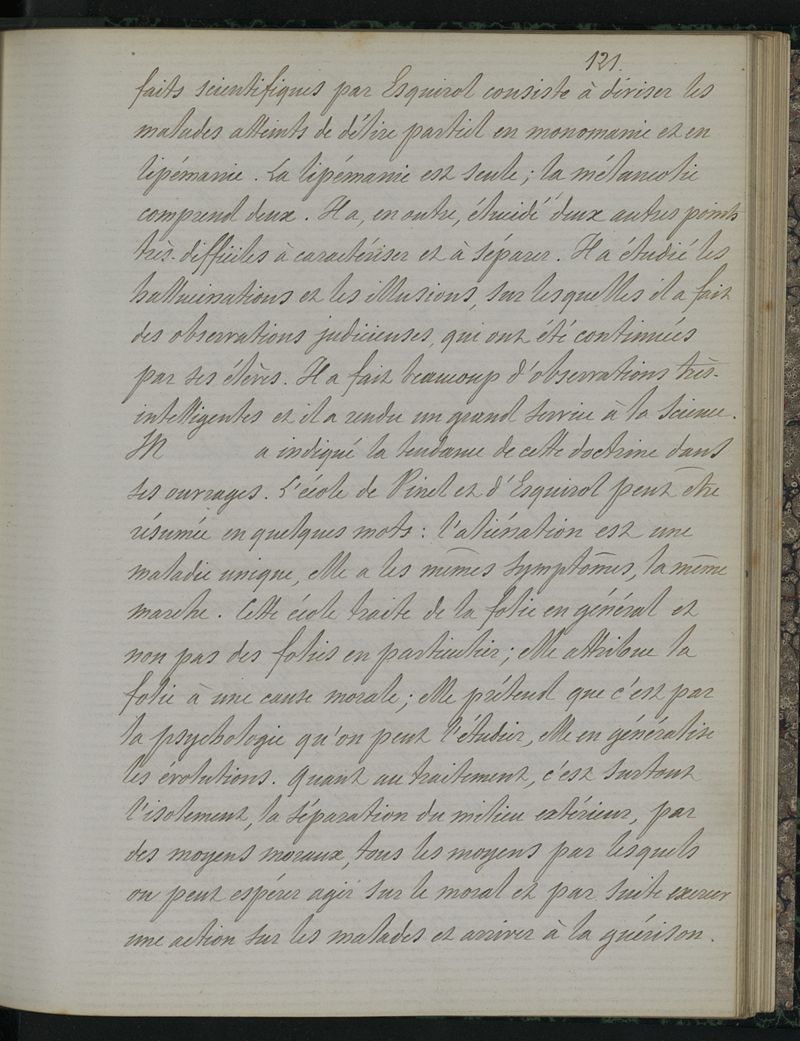 121.
faits scientifiques par Esquirol consiste à diviser les
malades atteints de délire partiel en monomanie et en
lipémanie. La lipémanie est seule; la mélancolie
comprend deux. Il a, en outre, élucidé deux autres points
très-difficiles à caractériser et à séparer. Il a étudié les
hallucinations et les illusions, sur lesquelles il a fait
des observations judicieuses, qui ont été continuées
par ses élèves. Il a fait beaucoup d'observations très-
intelligentes et il a rendu un grand service à la science.
M a indiqué la tendance de cette doctrine dans
ses ouvrages. L'école de Pinel et d'Esquirol peut être
résumée en quelques mots: l'aliénation est une
maladie unique, elle a les mêmes symptômes, la même
marche. Cette école traite de la folie en général et
non pas des folies en particulier; elle attribue la
folie à une cause morale; elle prétend que c'est par
la psychologie qu'on peut l'étudier, elle en généralise
les évolutions. Quant au traitement, c'est surtout
l'isolement, la séparation du milieu extérieur, par
des moyens moraux, tous les moyens par lesquels
on peut espérer agir sur le moral et par suite exercer
une action sur les malades et arriver à la guérison.